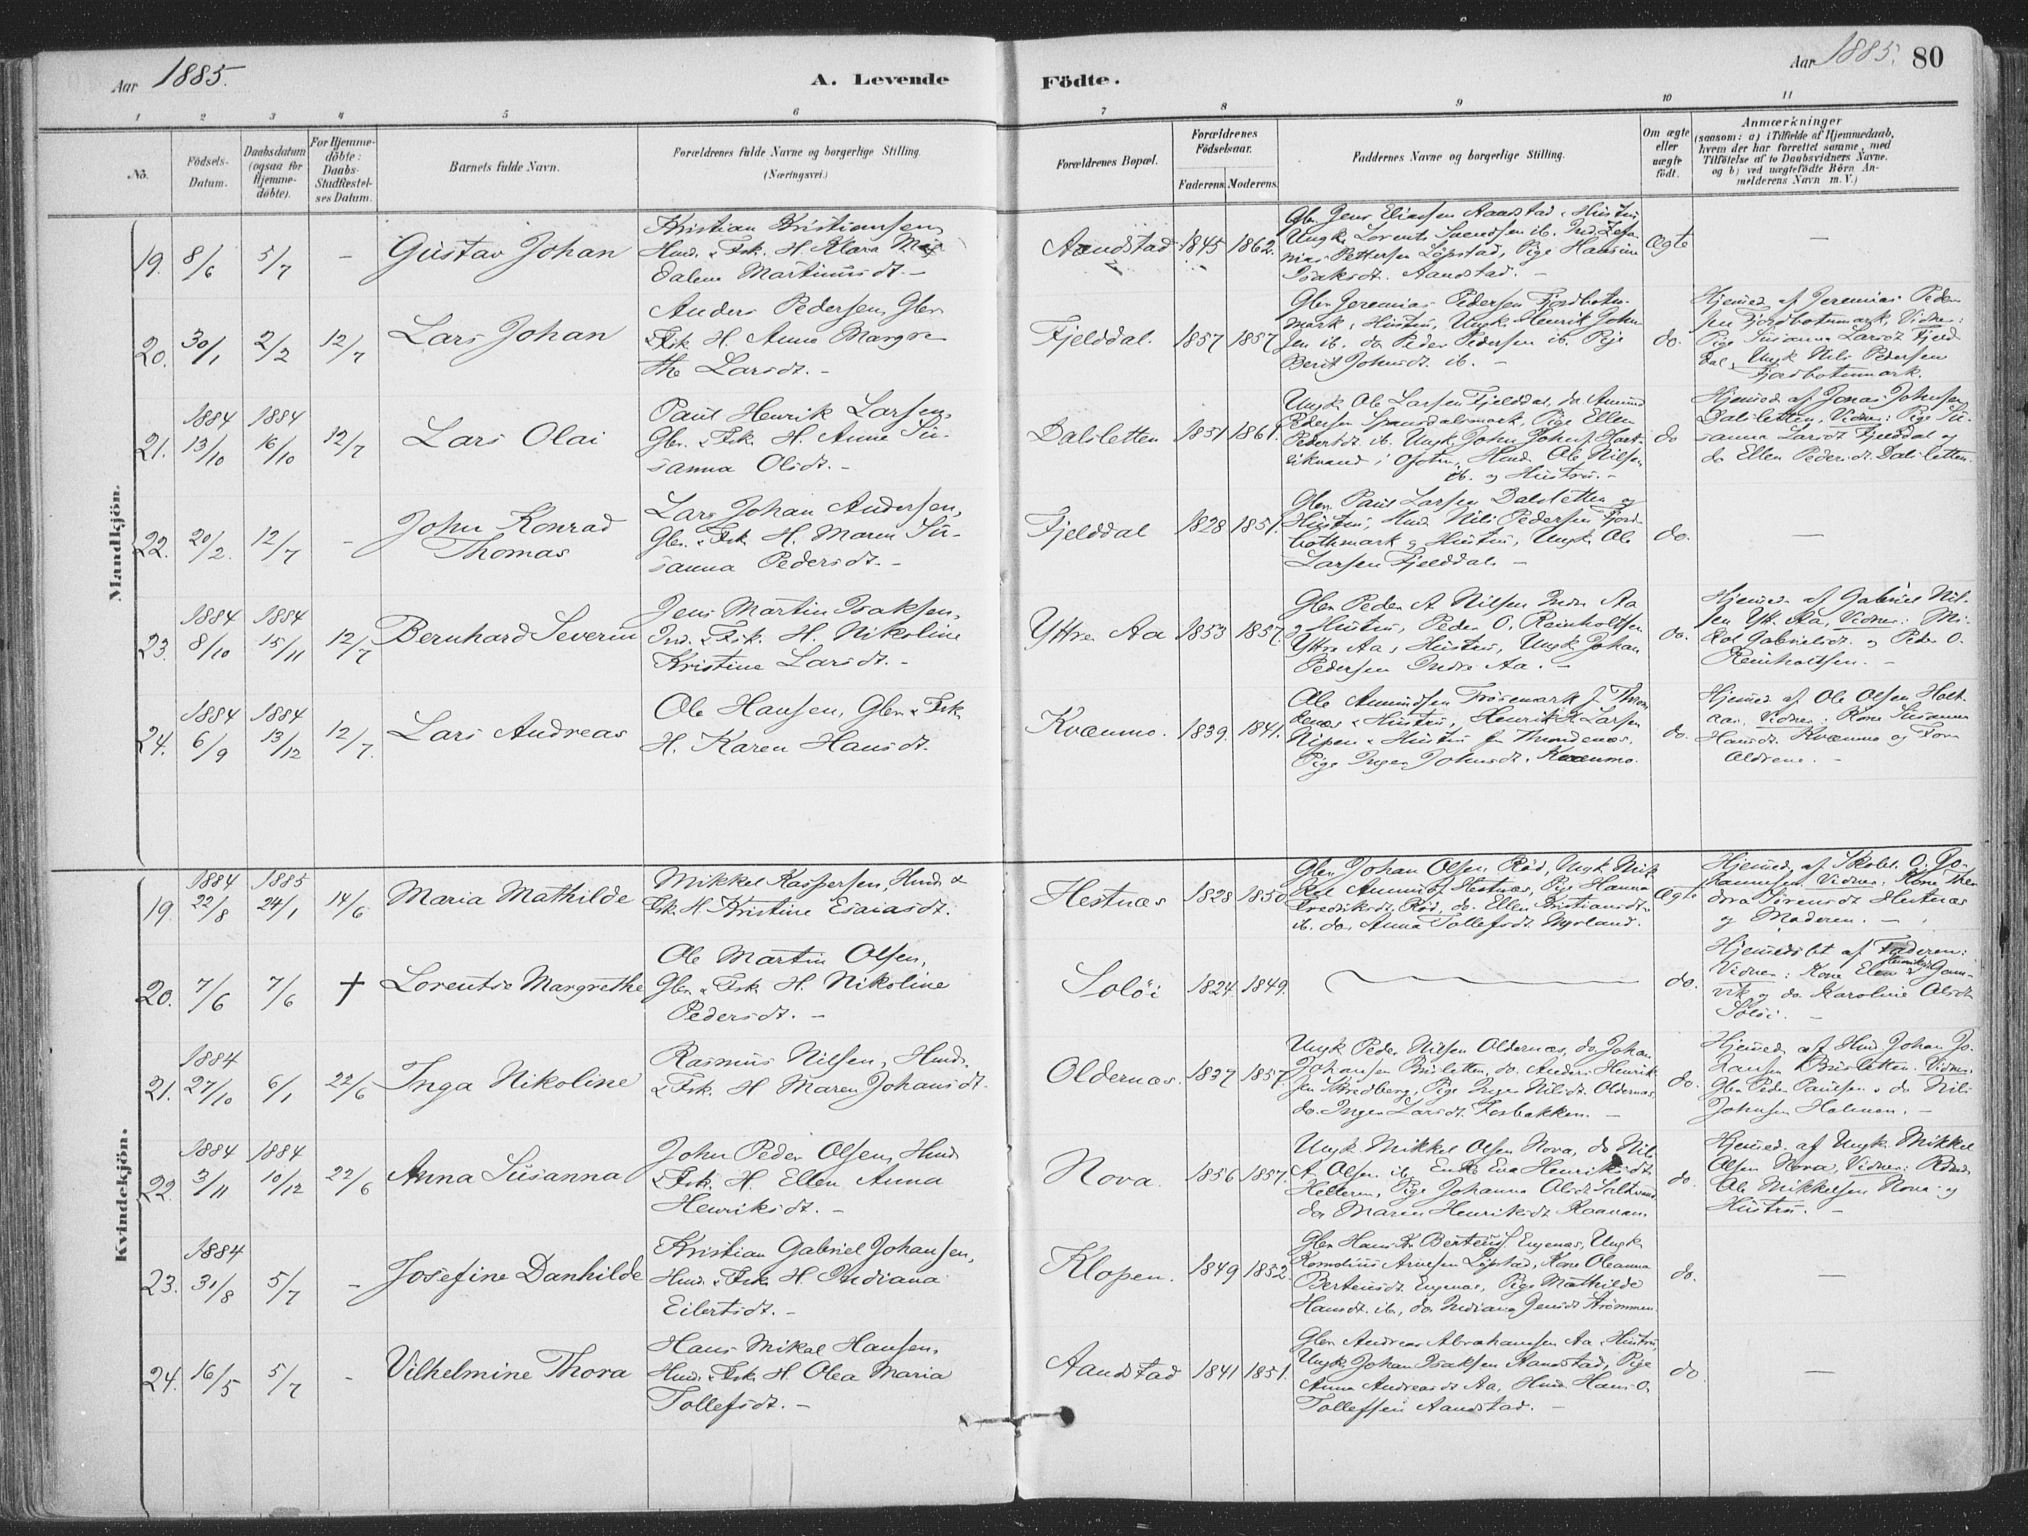 Aar 1885.
A. Levende
Födte.
Aar 1885. 80
1 2 3 4 5 6 7 8 9 10 11
No.
Födsels-
Datum.
Daabsdatum
(ogsaa for
Hjemme-
döbte).
For Hjemme-
döbte:
Daabs-
Stadfæstel-
ses Datum.
Barnets fulde Navn.
Forældrenes fulde Navne og borgerlige Stilling.
(Næringsvei.)
Forældrenes Bopæl.
Forældrenes
Födselsaar.
Faderens. Moderens.
Faddernes Navne og borgerlige Stilling.
Om ægte
eller
uægte
födt.
Anmærkninger
(saasom: a) i Tilfælde af Hjemmedaab,
hvem der har forrettet samme, med
Tilföielse af to Daabsvidners Navne.
og b) ved uægtefödte Börn An-
melderens Navn m. V.)
Mandkjön.
19. 8/6 5/7 - Gustav Johan
Kristian Kristiansen,
Hmd. & Fsk. H. Klara
Martinusdt. -
Aandstad 1845 1862.
Gbr. Jens Eliassen Aandstad & Hustru,
Ungk. Lorents Svendsen ib.
Pettersen Löpstad, Pige
Isaksdt. Aandstad. -
Ægte -
20. 30/1 2/2 12/7 Lars Johan
Anders Pedersen, Gbr.
& Fsk. H. Anne Margre-
the Larsdt. -
Fjelddal. 1857 1857
Gbr. Jeremias Pedersen Fjordbotn-
mark & Hustru, Ungk. Henrik John-
sen ib. do Peder Pedersen ib. Pige
Berit Johnsdt. ib. -
do.
Hjemmed. af Jeremias Peder-
sen Fjordbotnmark, Vidner:
Pige Susanna Larsdt. Fjeld-
dal & Ungk Nils Pedersen
Fjordbotnmark.
21. 1884 13/10 1884 16/10 12/7 Lars Olai
Paul Henrik Larsen,
Gbr. & Fsk. H. Anne Su-
sanna Olsdt. -
Dalsletten 1851 1861.
Ungk. Ole Larsen Fjelddal, do Amund
Pedersen Spansdalsmark, Pige Ellen
Pedersdt. ib. Ungk. John Johns.
i Ofoten, Hmd. Ole Nilsen
ib. og Hustru. -
do
Hjemmed. af Jonas Johnsen
Dalsletten. Vidner: Pige Su-
sanna Larsdt. Fjelddal og
do Ellen Pedersdt. Dalsletten.
22. 20/2. 12/7 - John Konrad
Thomas
Lars Johan Andersen,
Gbr. & Fsk. H. Maren Su-
sanna Pedersdt. -
Fjelddal 1828 1851.
Gbr. Paul Larsen Dalsletten og
Hustru, Hmd. Nils Pedersen Fjord-
bothmark og Hustru, Ungk. Ole
Larsen Fjelddal. -
do. -
23. 1884 8/10 1884 15/11 12/7 Bernhard Severin
Jens Martin Isaksen,
Ind. & Fsk. H. Nikoline
Kristine Larsdt. -
Yttre Aa 1853 1857.
Gbr. Peder A. Nilsen Indre Aa
og Hustru, Peder O. Reinholtsen
Yttre Aa & Hustru, Ungk Johan
Pedersen Indre Aa. -
do.
Hjemmed. af Gabriel Nil-
sen Ytt. Aa, Vidner:
Gabrielsdt. og Peder O.
Reinholtsen. -
24. 1884 6/9 1884 13/12 12/7. Lars Andreas
Ole Hansen, Gbr. & Fsk.
H. Karen Hansdt.
Kvænmo. 1839. 1841.
Ole Amundsen
& Hustru, Henrik H. Larsen
Nipen & Hustru
Pige Inger Johnsdt. Kvænmo.
do.
Hjemmed. af Ole Olsen
Vidner: Kone Susanna
Hansdt. Kvænmo og For-
ældrene. -
Kvindekjön.
19. 1884 22/8 1885 24/1 14/6 Maria Mathilde
Mikkel Kaspersen, Hmd. &
Fsk. H. Kristine Esaiasdt.
Hestnæs 1828 1850
Gbr. Johan Olsen, Röd, Ungk. Mik-
kel Amunds. Hestnæs, Pige Hanna
Fredriksdt. Röd, do. Ellen Kristiansdt.
ib. do. Anna Tollefsdt. Myrland.
Ægte
Hjemmed. af Skolel. O. Jo-
hannesen. Vidner: Kone The-
odora Sörensdt. Hestnæs
og Moderen. -
20. 7/6 7/6 + Lorentse Margrethe
Ole Martin Olsen,
Gbr. & Fsk. H. Nikoline
Pedersdt. -
Solöi 1824. 1849.
do.
Hjemmedöbt af Faderen:
Vidner: Kone Elen Henriksdt. Gam-
vik og do. Karoline Olsdt.
Solöi. -
21. 1884 27/10 6/1 22/6 Inga Nikoline
Rasmus Nilsen, Hmd.
& Fsk. H. Maren Johansdt.
Oldernæs. 1837 1857.
Ungk. Peder Nilsen Oldernæs, do Johan
Johansen Brusletten, do. Anders Henrik-
sen Bredberg, Pige Inger Nilsdt. Oldernæs
do. Inger Larsdt. Fosbakken. -
do.
Hjemmed. af Hmd Johan Jo-
hansen Brusletten. Vidner:
Gbr. Peder Paulsen & do Nils
Johnsen Holmen. -
22. 1884 3/11 1884 10/12 22/6 Anna Susanna
John Peder Olsen, Hmd
& Fsk. H. Ellen Anna
Henriksdt. -
Nova. 1856 1857.
Ungk Mikkel Olsen Nova, do Nils
A. Olsen ib, Enke Eva Henriksdt.
Helleren, Pige Johanna Olsdt. Saltvand
do Maren Henriksdt. Raavan.
do.
Hjemmed. af Ungk. Mikkel
Olsen Nova, Vidner:
Ole Mikkelsen Nova og
Hustru. -
23. 1884 31/8 5/7 - Josefine Danhilde
Kristian Gabriel Johansen,
Hmd. & Fsk. H. Indiana
Eilertsdt. -
Klopen. 1849 1852.
Gbr. Hans Kr. Berteus. Engenæs, Ungk
Kornelius Arnesen Löpstad, Kone Oleanna
Berteusdt. Engenæs, Pige Mathilde
Hansdt. ib, do. Indiana Jensdt. Strömmen.
do. -
24. 16/5 5/7 - Vilhelmine Thora
Hans Mikal Hansen,
Hmd. & Fsk. H. Olea Maria
Tollefsdt. -
Aandstad 1841 1851.
Gbr Andreas Abrahamsen Aa & Hustru,
Ungk. Johan Isaksen Aandstad, Pige
Anna Andreasdt. Aa, Hmd. Hans O.
Tollefsen Aandstad. -
do -